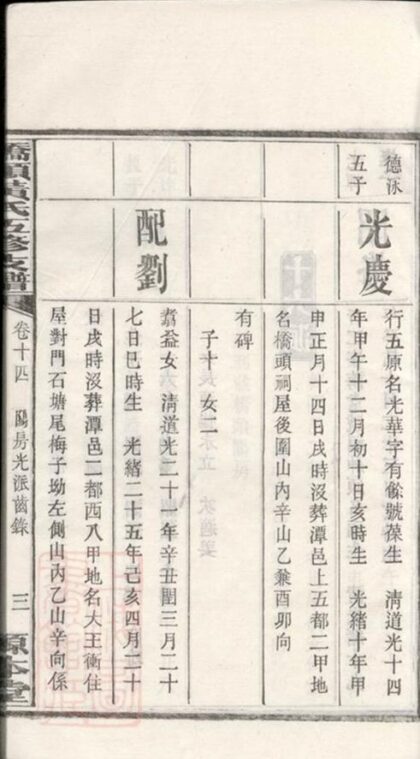 德泳
五子
光慶
行五原名光華字有餘號葆生 清道光十四
年甲午十二月初十日亥時生 光緒十年甲
申正月十四日戌時沒葬潭邑上五都二甲地
名橋頭祠屋後圍山內辛山乙兼酉卯向
有碑
子十 女二
配劉
翥益女 清道光二十一年辛丑閏三月二十
七日巳時生 光緒二十五年己亥四月二十
日戌時沒葬潭邑二都西八甲地名大王衝住
屋對門石塘尾梅子坳左側山內乙山辛向係
橋頭黃氏五修支譜
卷十四 陽房光派齒錄
三
源本堂